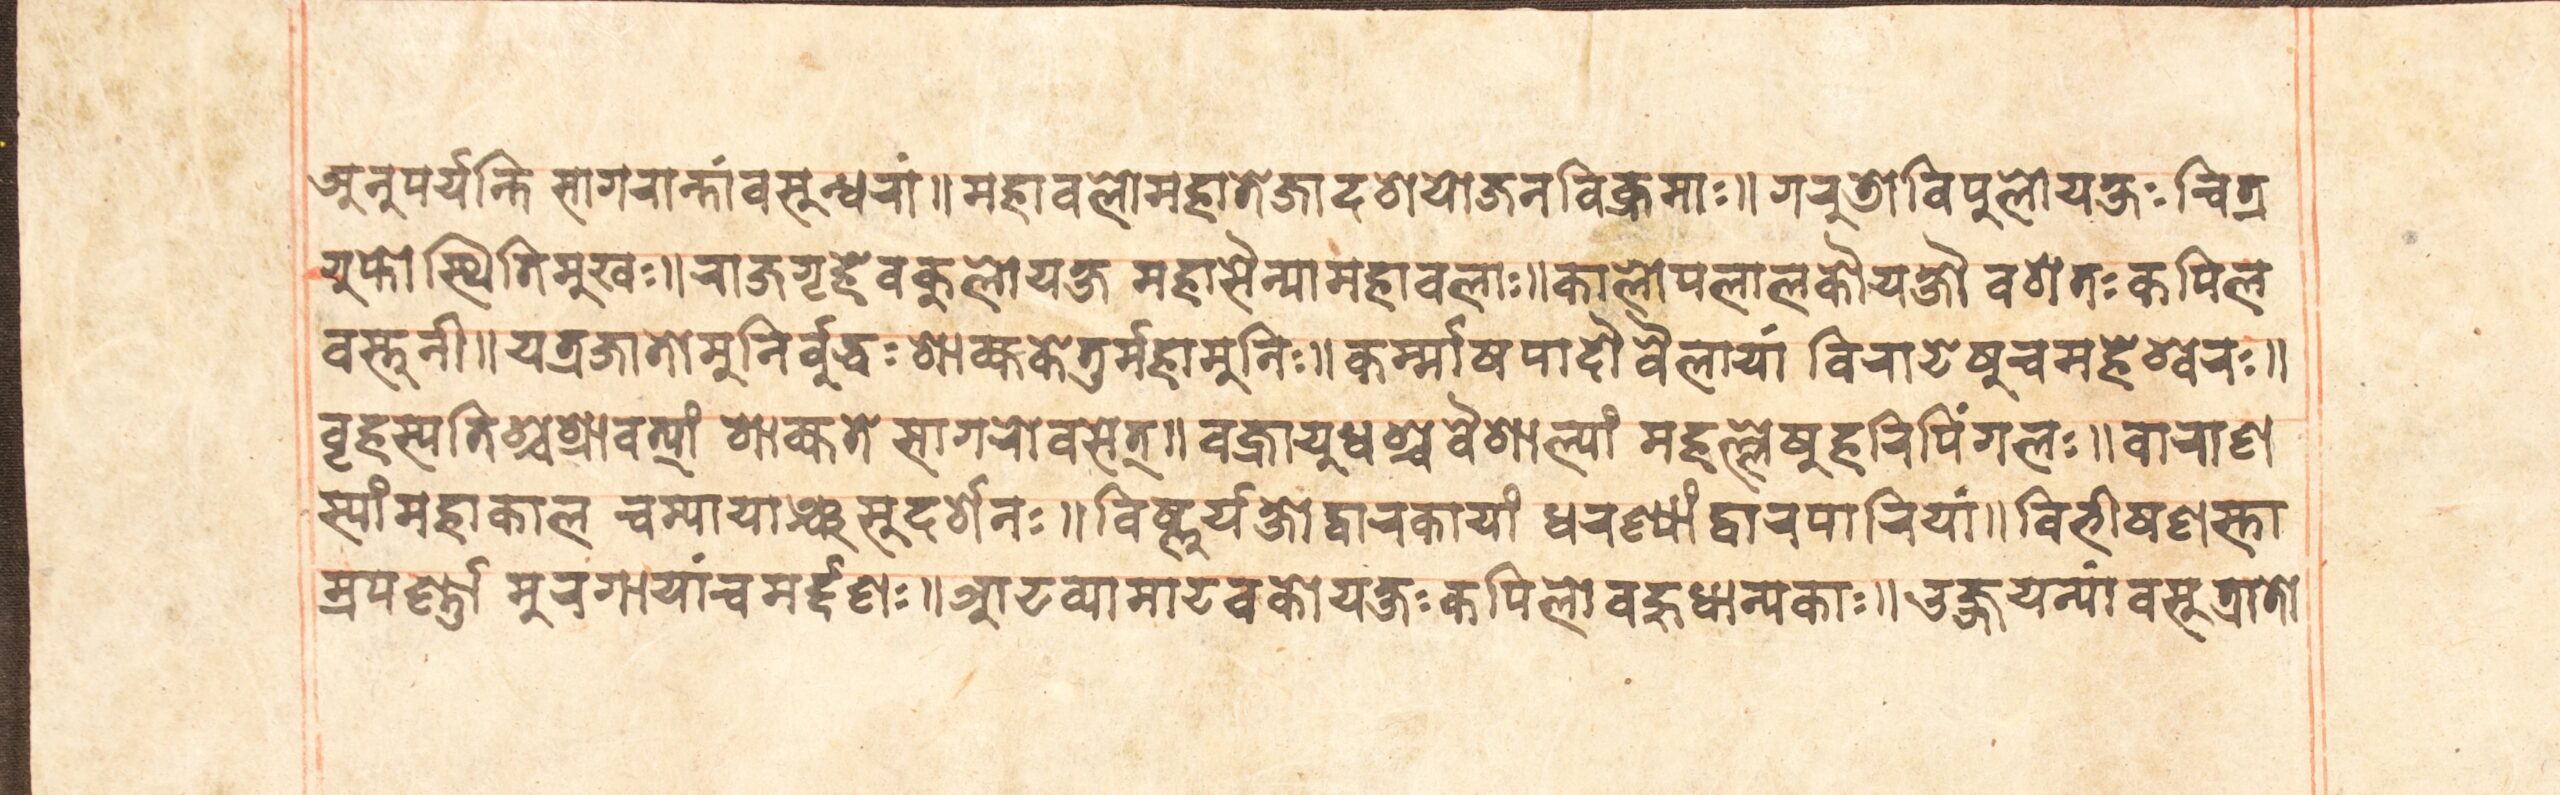 अनुपर्यन्ति सागरान्तांवसुन्धरां॥महावलोमहातेजादशयोजनविक्रमाः॥गरुतोविपुलोयक्षःचित्र
गुप्तोस्थितिमुखः॥राजगृहेवकुलोयक्ष महासैन्यामहावलाः॥कालोपलालकौयक्षौ वशेतःकपिल
वस्तुनी॥यत्रजातोमुनिर्वुद्धःशाक्यकेतुर्महामुनिः॥कर्म्माषपादौवैलायां विराटेषुचमहेश्वेरः॥
वृहस्पतिश्चश्रावत्यां शाक्यते सागरोवसेत्॥वज्रायुधश्चवैशाल्यां मह्लल्लेषुहरिपिंगलः॥वाराण
स्यांमहाकाल चम्पायाञ्चसुदर्शनः॥विष्णुर्यक्षोद्वारकायां धरण्यांद्वारपारियां॥विभीषणस्ता
म्रपर्ण्णां मुरगायांचमर्द्दणः॥आटव्यामाटवकोयक्षःकपिलोवहुधान्यकाः॥उज्जयन्यांवसुत्रातो